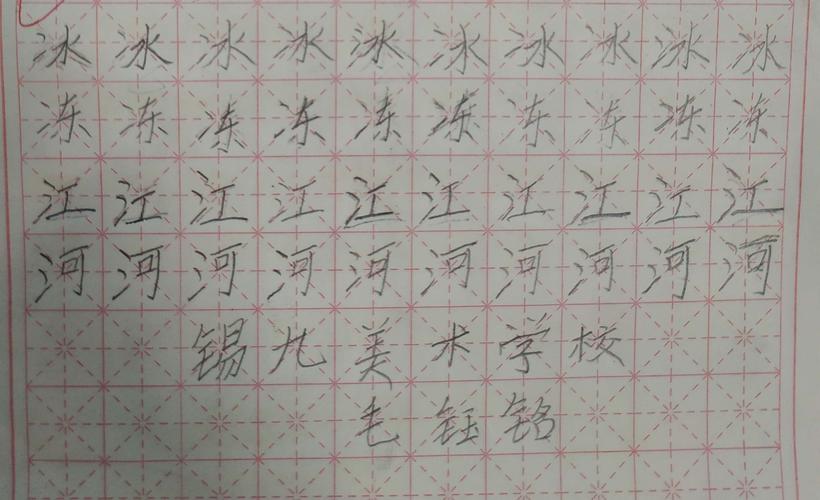 冰冰冰冰冰冰冰冰冰冰
冻冻冻冻冻冻冻冻冻冻
江江江江江江江江江江
河河河河河河河河河河
锡九美术学校
毛钰铭